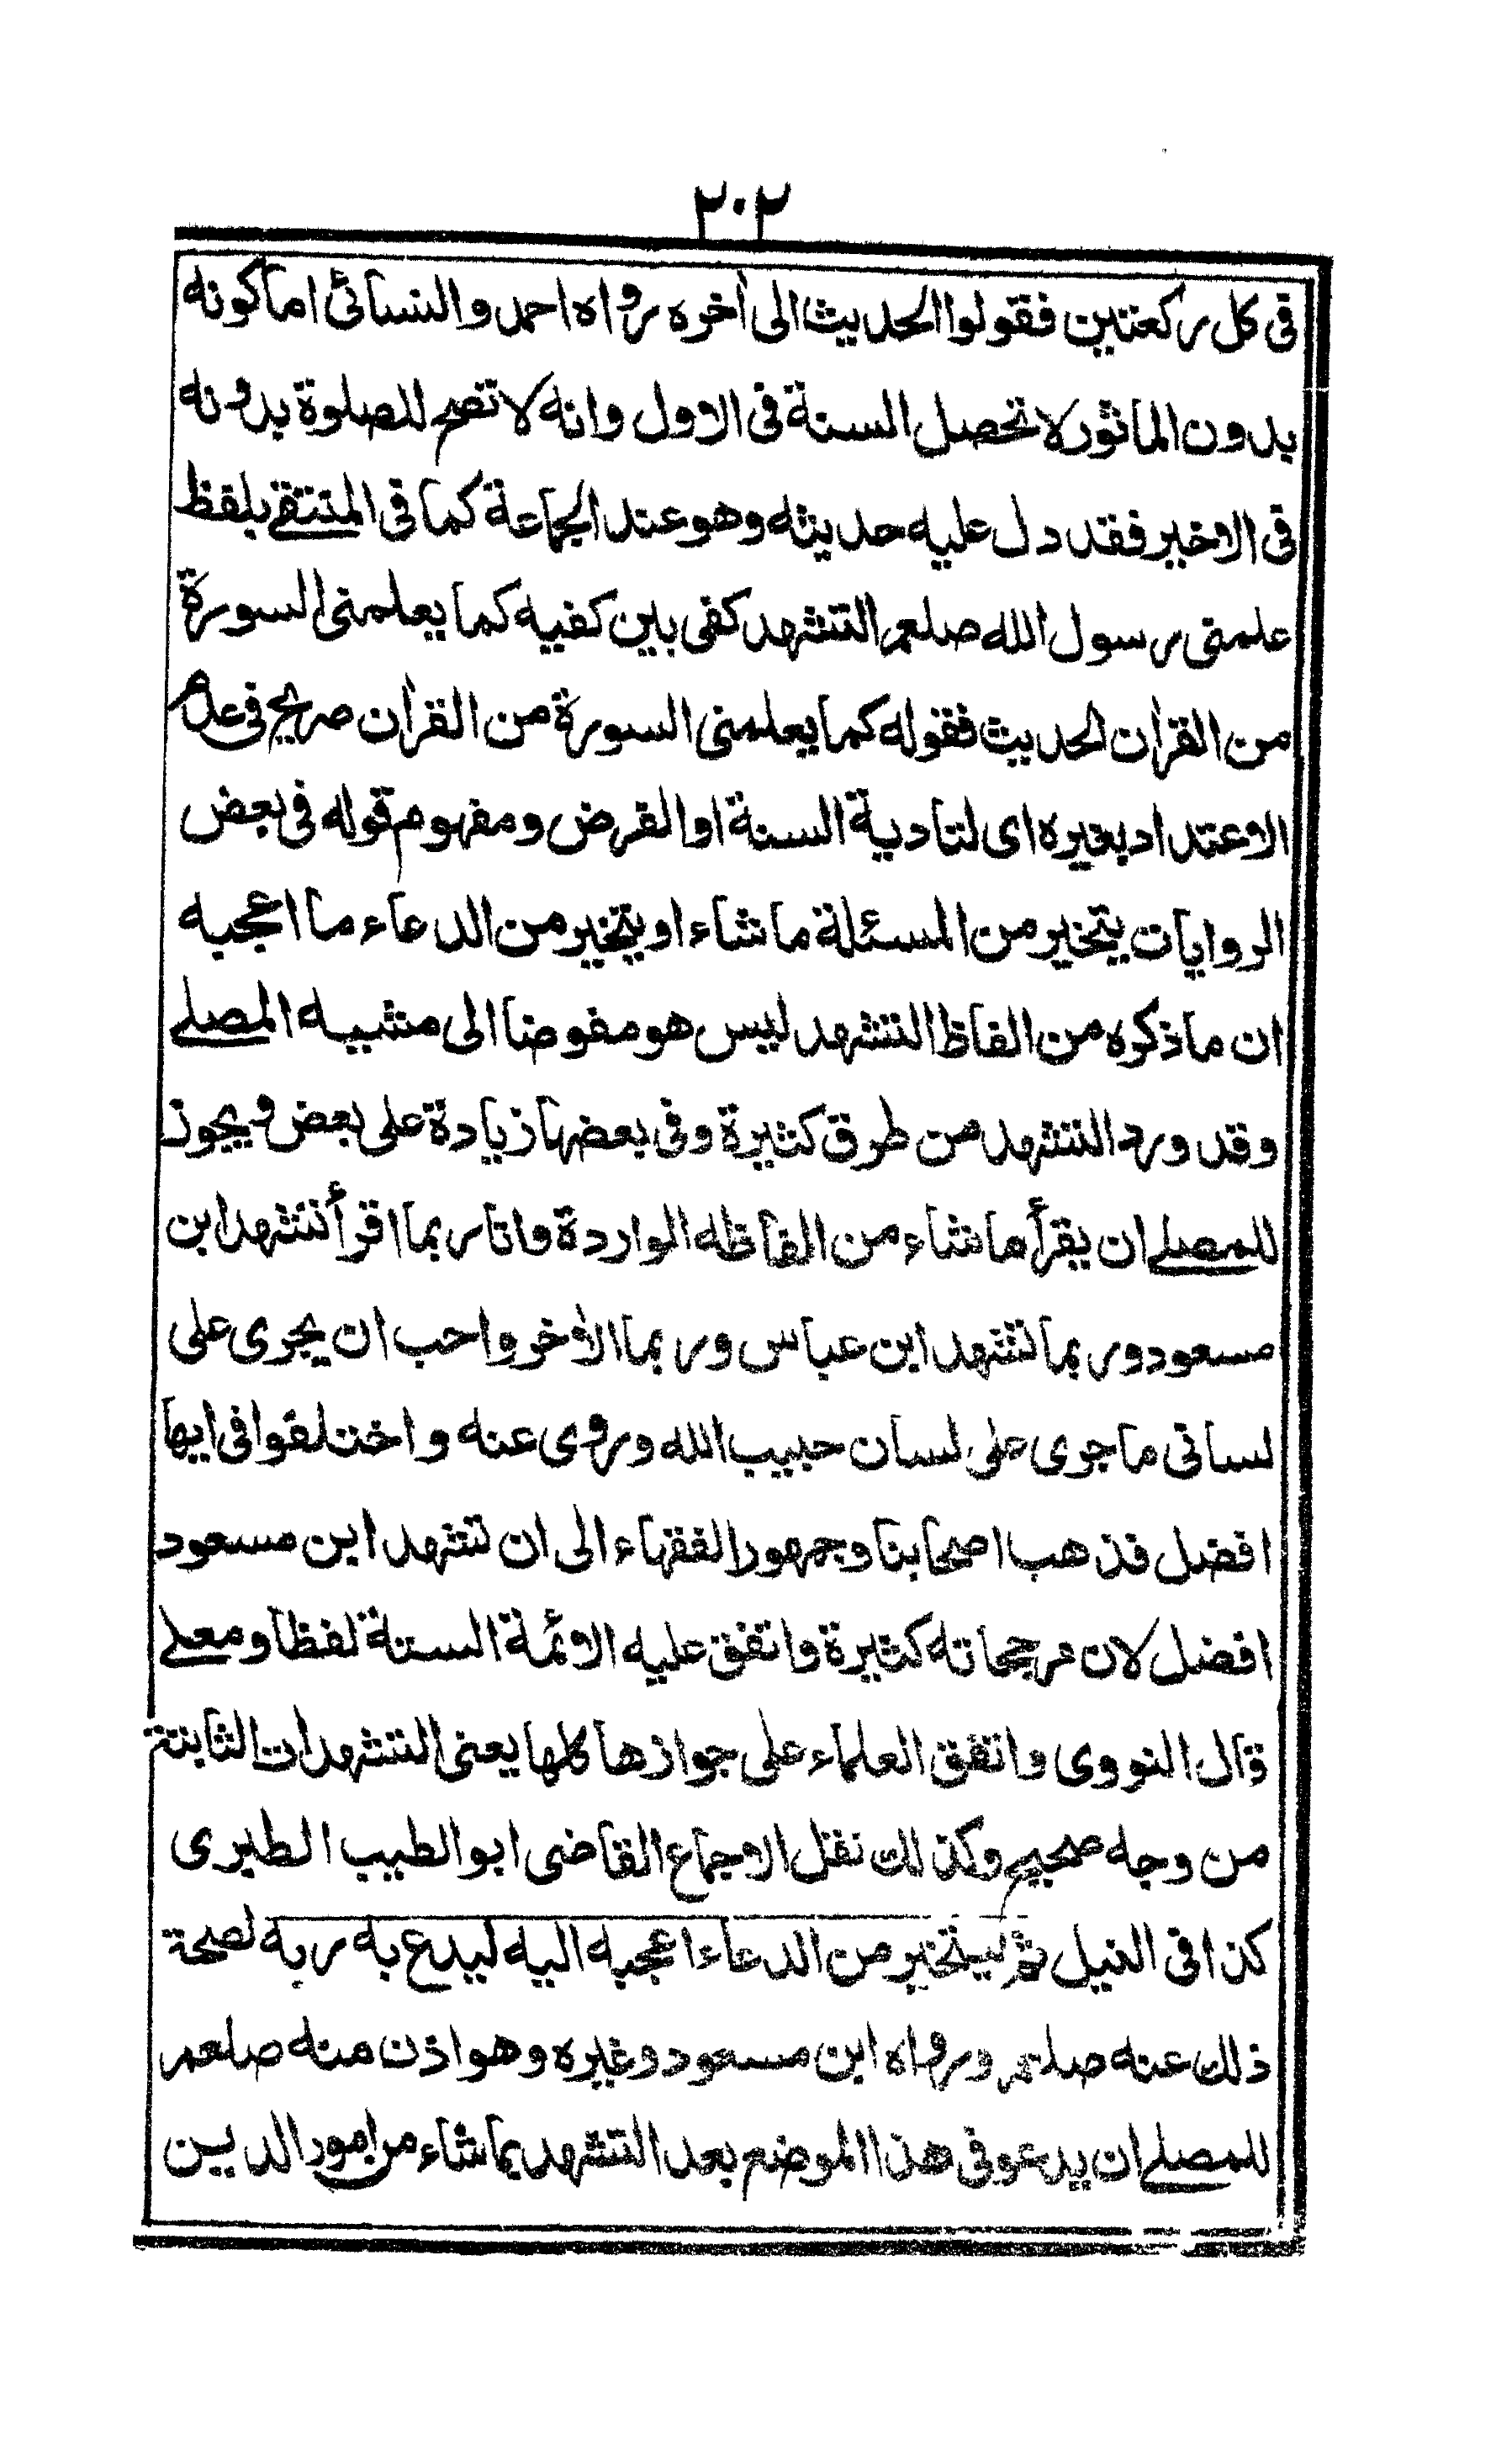 ٢٠٢
فى كل ركعتين فقولوا الحديث الى أخره رواه احمد والنسائى اما كونه
بدون الماثور لا تحصل السنة فى الاول وانه لا تصح للصلوة بدونه
فى الاخير فقد دل عليه حديثه وهو عند الجماعة كما فى المنتقے بلفظ
علمنى رسول الله صلعم التشهد كفى بين كفيه كما يعلمنى السورة
من القرأن الحديث فقوله كما يعلمنى السورة من القرأن صريح فى عدم
الاعتداد بغيره اى لتادية السنة او الفرض ومفهوم قوله فى بعض
الروايات يتخير من المسئلة ما شاء او يتخير من الدعاء ما اعجبه
ان ما ذكره من الفاظ التشهد ليس هو مفوضا الى مشيه المصلے
وقد ورد التشهد من طرق كثيرة وفى بعضها زيادة على بعض ويجوز
للمصلے ان يقرأ ما شاء من الفاظه الواردة وانا ربما اقرأ تشهد ابن
مسعود وربما تشهد ابن عباس وربما الأخر واحب ان يجرى على
لسانى ما جرى على لسان حبيب الله وروى عنه واختلفوا فى ايها
افضل فذهب اصحابنا وجمهور الفقهاء الى ان تشهد ابن مسعود
افضل لان مرجحاته كثيرة واتفق عليه الائمة الستة لفظا ومعنے
قال النووى واتفق العلماء على جوازها كلها يعنى التشهدات الثابتة
من وجه صحيح وكذلك نقل الاجماع القاضى ابو الطيب الطبرى
كذا فى النيل ثم ليتخير من الدعاء اعجبه اليه ليدع به ربه لصحة
ذلك عنه صلعم ورواه ابن مسعود وغيره وهو اذن منه صلعم
للمصلے ان يدعو فى هذا الموضع بعد التشهد بما شاء من امور الدين